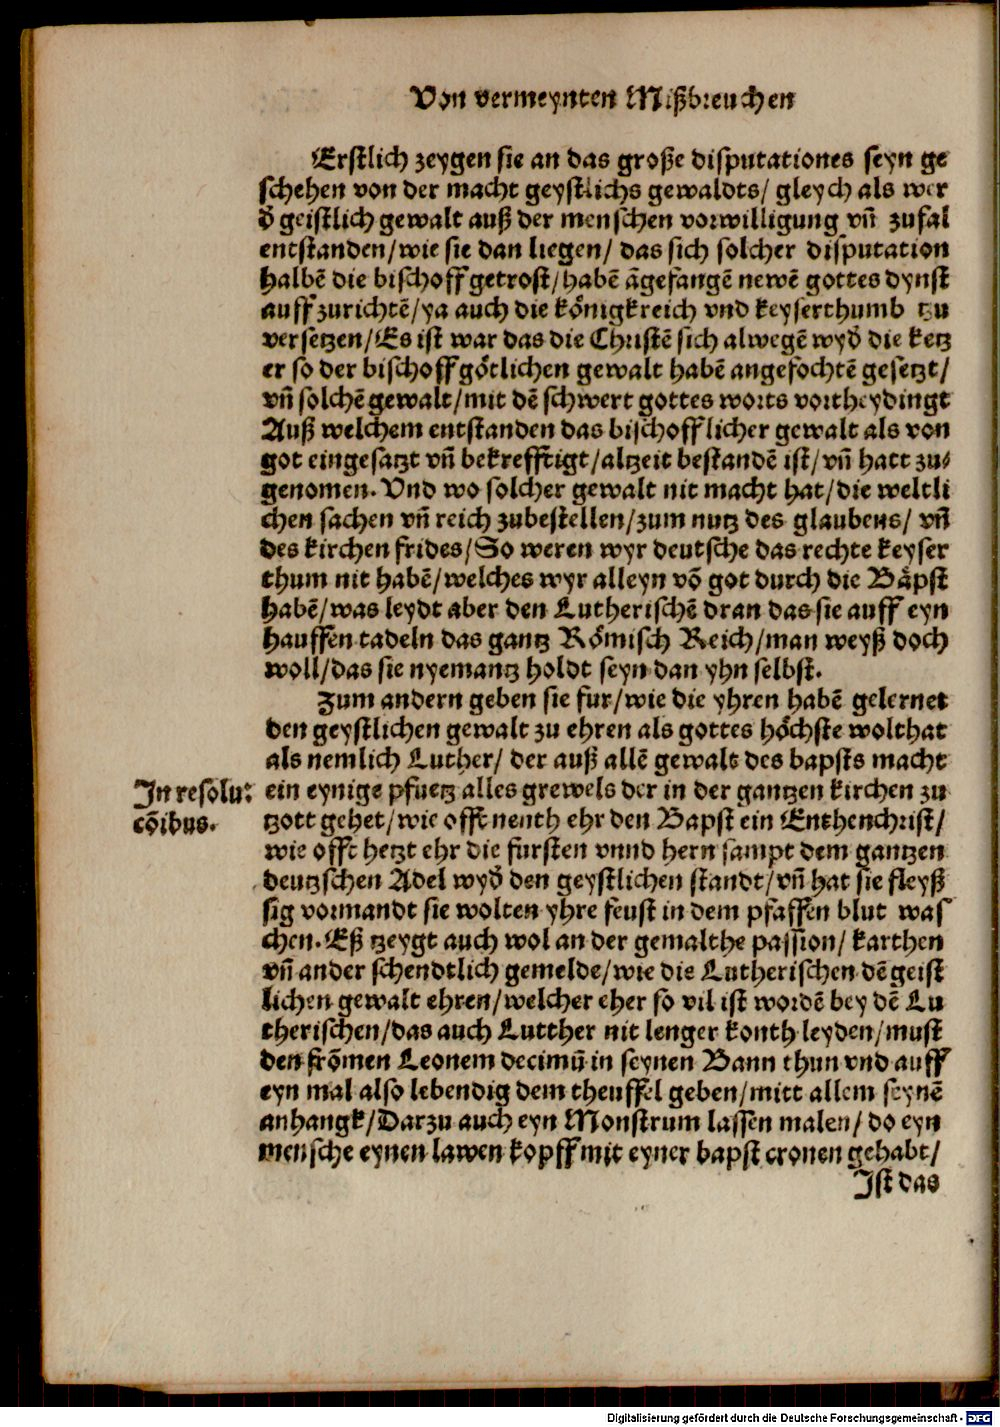 Von vermeynten Mißbreuchen
Erstlich zeygen sie an das große disputationes seyn ge
schehen von der macht geystlichs gewaldts/ gleych als wer
d̄ geistlich gewalt auß der menschen vorwilligung vn̄ zufal
entstanden/wie sie dan liegen/ das sich solcher disputation
halbē die bischoff getrost/habē āgefangē newē gottes dynst
auff zurichtē/ya auch die königkreich vnd keyserthumb tzu
versetzen/Es ist war das die Christē sich alwegē wyd̄ die ketz
er so der bischoff götlichen gewalt habē angefochtē gesetzt/
vn̄ solchē gewalt/mit dē schwert gottes worts vortheydingt
Auß welchem entstanden das bischofflicher gewalt als von
got eingesatzt vn̄ bekrefftigt/altzeit bestandē ist/vn̄ hatt zu⸗
genomen. Vnd wo solcher gewalt nit macht hat/die weltli
chen sachen vn̄ reich zubestellen/zum nutz des glaubens/ vn̄
des kirchen frides/So weren wyr deutsche das rechte keyser
thum nit habē/welches wyr alleyn vō got durch die Bäpst
habē/was leydt aber den Lutherischē dran das sie auff eyn
hauffen tadeln das gantz Römisch Reich/man weyß doch
woll/das sie nyemantz holdt seyn dan yhn selbst.
Zum andern geben sie fur/wie die yhren habē gelernet
den geystlichen gewalt zu ehren als gottes höchste wolthat
als nemlich Luther/ der auß allē gewalt des bapsts macht
In resolu:
ein eynige pfuetz alles grewels der in der gantzen kirchen zu
cōibus.
tzott gehet/wie offt nenth ehr den Bapst ein Enthenchrist/
wie offt hetzt ehr die fursten vnnd hern sampt dem gantzen
deutzschen Adel wyd̄ den geystlichen standt/vn̄ hat sie fleyß
sig vormandt sie wolten yhre feust in dem pfaffen blut was
chen. Eß tzeygt auch wol an der gemalthe passion/ karthen
vn̄ ander schendtlich gemelde/wie die Lutherischen dē geist
lichen gewalt ehren/welcher eher so vil ist wordē bey dē Lu
therischen/das auch Lutther nit lenger konth leyden/must
den frōmen Leonem decimū in seynen Bann thun vnd auff
eyn mal also lebendig dem theuffel geben/mitt allem seynē
anhangk/Darzu auch eyn Monstrum lassen malen/ do eyn
mensche eynen lawen kopff mit eyner bapst cronen gehabt/
Ist das
Digitalisierung gefördert durch die Deutsche Forschungsgemeinschaft - DFG